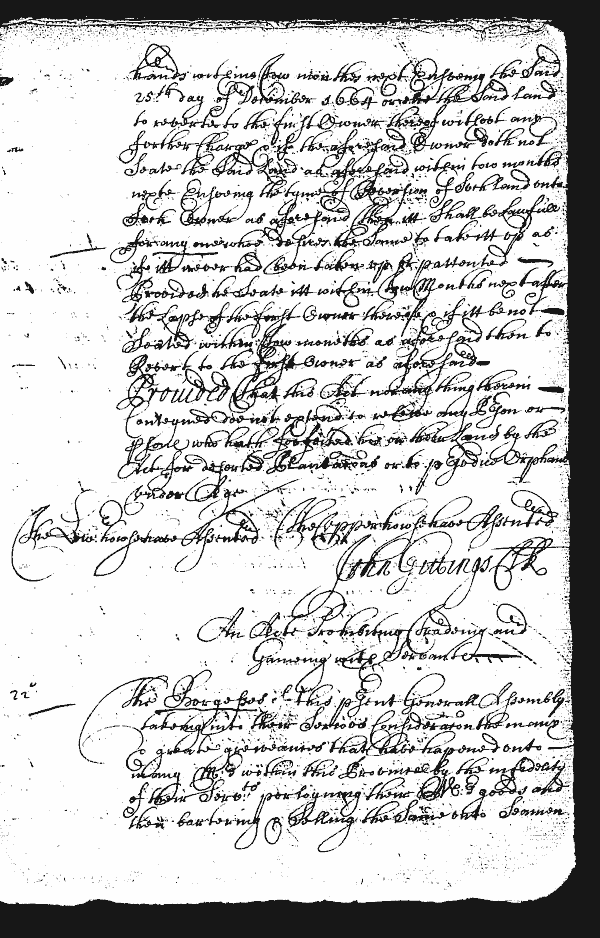 hands within two monthes next Ensveing the Said
25th day of December 1664 or else the Said land
to reverte to the first Owner thereof without any
further Charge & if the aforesaid Owner doth not
Seate the Said Land as aforesaid within two months
nexte Ensveing the tyme of Reversion of Such land onto
Such Owner as aforesaid then itt Shall be Lawfull
for any one who desires the Same to take itt up as
if itt never had been taken up or pattented
Provided he Seate itt within two Months next after
the Lapse of the first Owner thereof & if itt be not
Seated within two moneths as aforesaid then to
Revert to the first Owner as aforesaid
Provided That this Act nor any thing therein
Conteyned doe not extend to releive any Pson or
psons who hath forfeited his or their Land by the
Act for deserted Plantations or to pjudice Orphans
under Age
The Lower howse have Assented The Upper howse have Assented
John Gittings Clk
An Acte Prohibiting Tradeing and
Gameing with Servants
22d The Burgesses of this psent Generall Assembly
takeing into their Serious Consideracon the many
& greate greivances that have hapened onto
many Mrs within this Province by the infidelity
of their Servts purloyning their Mrs goods and
then bartering & Selling the Same onto Seamen